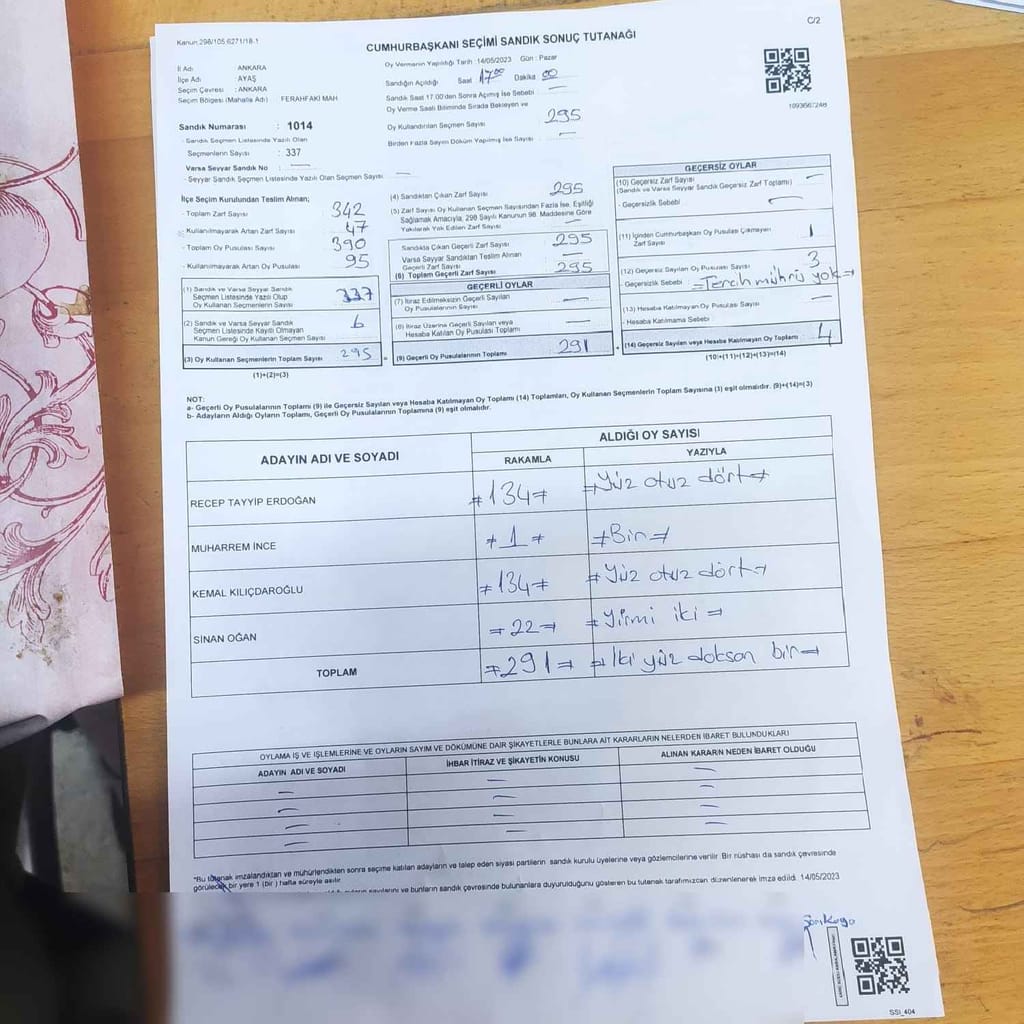 C/2
Kanun 298/105 6271/18-1
CUMHURBAŞKANI SEÇİMİ SANDIK SONUÇ TUTANAĞI
Oy Vermenin Yapıldığı Tarih : 14/05/2023 Gün : Pazar
İl Adı ANKARA
İlçe Adı AYAŞ
Seçim Çevresi : ANKARA
Seçim Bölgesi (Mahalle Adı) FERAHFAKI MAH
Sandığın Açıldığı Saat 17:00 Dakika 00
Sandık Saat 17.00'den Sonra Açımış İse Sebebi —
Oy Verme Saati Bitiminde Sırada Bekleyen ve
Oy Kullandırılan Seçmen Sayısı 295
Birden Fazla Sayım Döküm Yapılmış İse Sayısı —
Sandık Numarası : 1014
- Sandık Seçmen Listesinde Yazılı Olan
Seçmenlerin Sayısı : 337
Varsa Seyyar Sandık No —
- Seyyar Sandık Seçmen Listesinde Yazılı Olan Seçmen Sayısı —
İlçe Seçim Kurulundan Teslim Alınan;
- Toplam Zarf Sayısı 342
- Kullanılmayarak Artan Zarf Sayısı 47
- Toplam Oy Pusulası Sayısı 390
- Kullanılmayarak Artan Oy Pusulası 95
(1) Sandık ve Varsa Seyyar Sandık
Seçmen Listesinde Yazılı Olup
Oy Kullanan Seçmenlerin Sayısı 337
(2) Sandık ve Varsa Seyyar Sandık
Seçmen Listesinde Kayıtlı Olmayan
Kanun Gereği Oy Kullanan Seçmen Sayısı 6
(3) Oy Kullanan Seçmenlerin Toplam Sayısı 295
(1)+(2)=(3)
(4) Sandıktan Çıkan Zarf Sayısı 295
(5) Zarf Sayısı Oy Kullanan Seçmen Sayısından Fazla İse, Eşitliği
Sağlamak Amacıyla, 298 Sayılı Kanunun 98. Maddesine Göre
Yakılarak Yok Edilen Zarf Sayısı —
Sandıkta Çıkan Geçerli Zarf Sayısı 295
Varsa Seyyar Sandıktan Teslim Alınan
Geçerli Zarf Sayısı —
(6) Toplam Geçerli Zarf Sayısı 295
GEÇERLİ OYLAR
(7) İtiraz Edilmeksizin Geçerli Sayılan
Oy Pusulalarının Sayısı —
(8) İtiraz Üzerine Geçerli Sayılan veya
Hesaba Katılan Oy Pusulası Toplamı —
(9) Geçerli Oy Pusulalarının Toplamı 291
GEÇERSİZ OYLAR
(10) Geçersiz Zarf Sayısı —
(Sandık ve Varsa Seyyar Sandık Geçersiz Zarf Toplamı)
- Geçersizlik Sebebi —
(11) İçinden Cumhurbaşkanı Oy Pusulası Çıkmayan
Zarf Sayısı 1
(12) Geçersiz Sayılan Oy Pusulası Sayısı 3
- Geçersizlik Sebebi = Tercih mührü yok =
(13) Hesaba Katılmayan Oy Pusulası Sayısı —
- Hesaba Katılmama Sebebi
(14) Geçersiz Sayılan veya Hesaba Katılmayan Oy Toplamı 4
(10)+(11)+(12)+(13)=(14)
NOT:
a- Geçerli Oy Pusulalarının Toplamı (9) ile Geçersiz Sayılan veya Hesaba Katılmayan Oy Toplamı (14) Toplamları, Oy Kullanan Seçmenlerin Toplam Sayısına (3) eşit olmalıdır. (9)+(14)=(3)
b- Adayların Aldığı Oyların Toplamı, Geçerli Oy Pusulalarının Toplamına (9) eşit olmalıdır.
ADAYIN ADI VE SOYADI ALDIĞI OY SAYISI
RAKAMLA YAZIYLA
RECEP TAYYİP ERDOĞAN =134= =Yüz otuz dört=
MUHARREM İNCE =1= =Bir=
KEMAL KILIÇDAROĞLU =134= =Yüz otuz dört=
SİNAN OĞAN =22= =Yirmi iki=
TOPLAM =291= =İki yüz doksan bir=
OYLAMA İŞ VE İŞLEMLERİNE VE OYLARIN SAYIM VE DÖKÜMÜNE DAİR ŞİKAYETLERLE BUNLARA AİT KARARLARIN NELERDEN İBARET BULUNDUKLARI
ADAYIN ADI VE SOYADI İHBAR İTİRAZ VE ŞİKAYETİN KONUSU ALINAN KARARIN NEDEN İBARET OLDUĞU
— — —
— — —
— — —
— — —
*Bu tutanak imzalandıktan ve mühürlendikten sonra seçime katılan adayların ve talep eden siyasi partilerin sandık kurulu üyelerine veya gözlemcilerine verilir. Bir nüshası da sandık çevresinde
görülecek bir yere 1 (bir) hafta süreyle asılır.
sayılarını ve bunların sandık çevresinde bulunanlara duyurulduğunu gösteren bu tutanak tarafımızdan düzenlenerek imza edildi. 14/05/2023
SSI_404